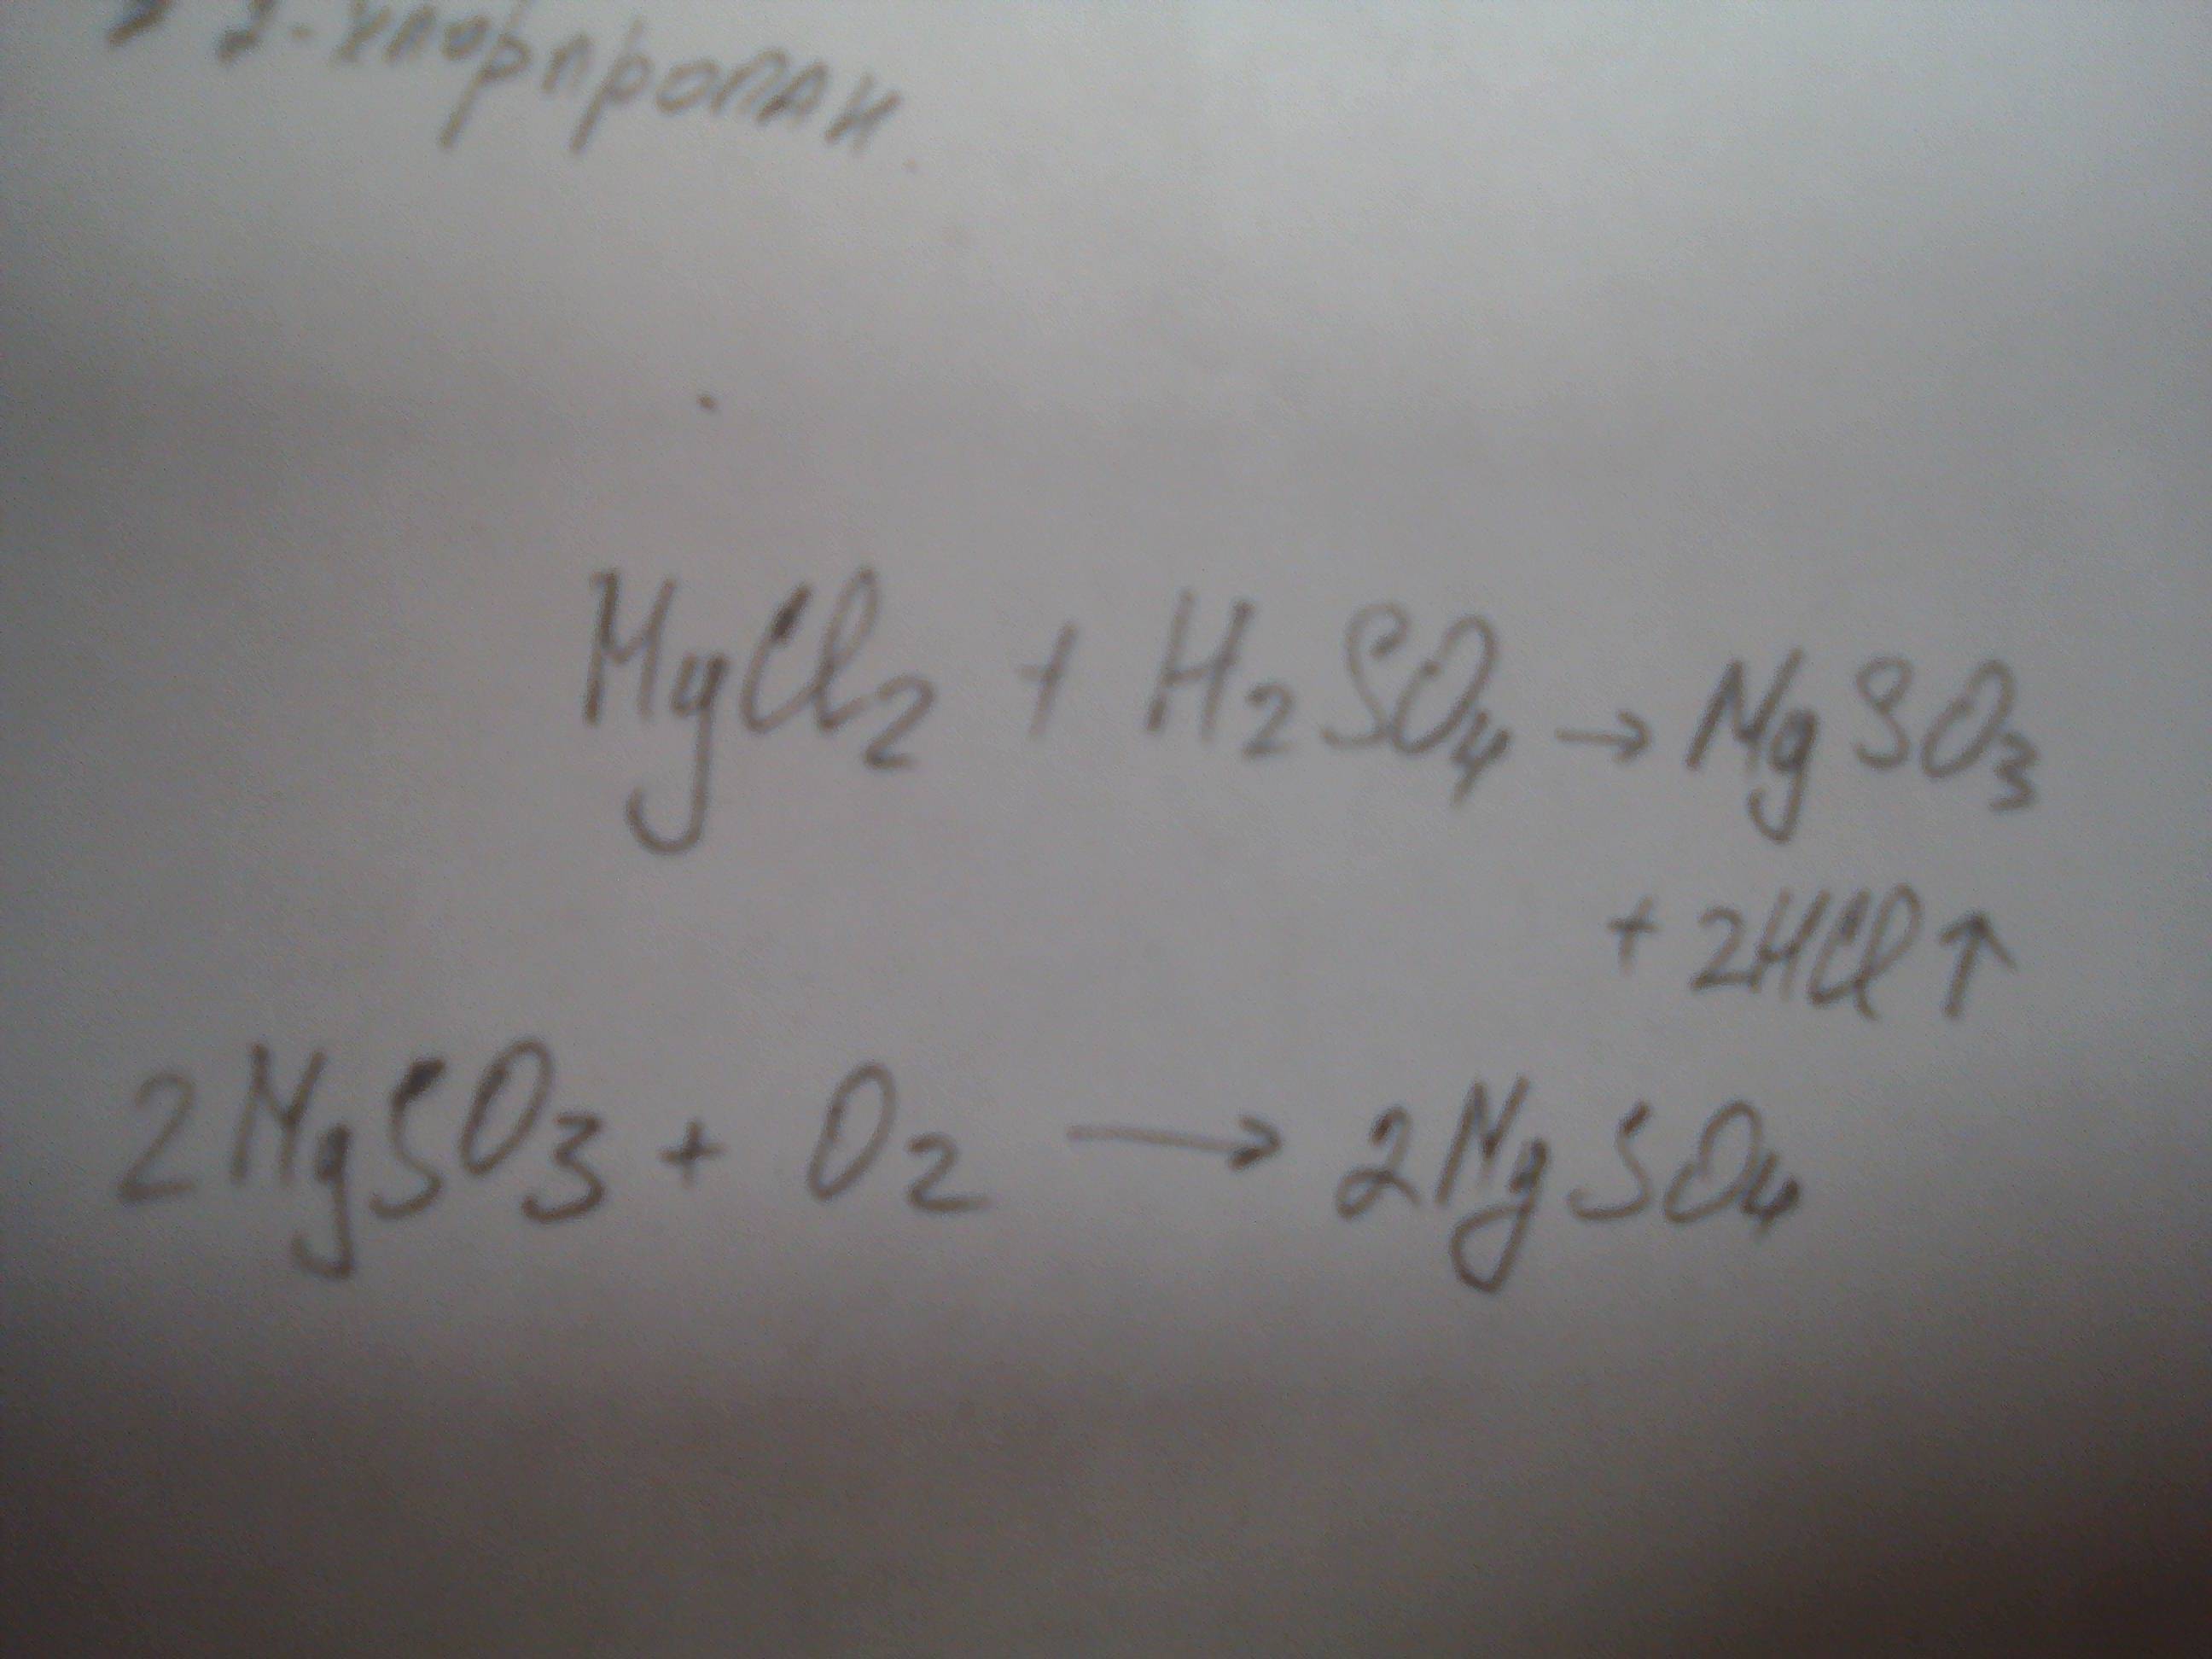 2-хлорпропан.
MgCl₂ + H₂SO₄ → MgSO₃
+ 2HCl ↑
2MgSO₃ + O₂ → 2MgSO₄